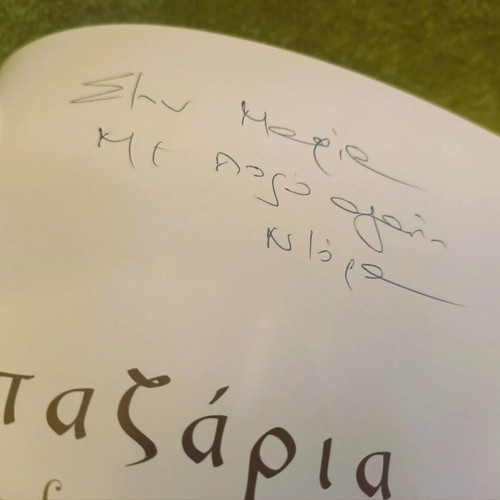 Στην Μαρία
Με πολύ αγάπη
Ντόρα
παζάρια